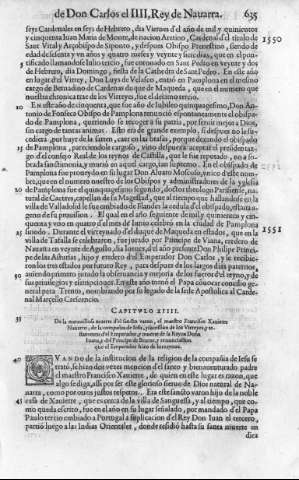 de Don Carlos el IIII, Rey de Nauarra. 635
seys Cardenales en seys de Hebrero, dia Viernes del año de mil y quinientos
y cinquenta Iuan Maria de Monte, de nacion Aretino, Cardenal del titulo de
San Vital y Arçobispo de Siponto, y despues Obispo Prenestino, siendo de
edad de sesenta y años y quatro meses y veynte y seys dias, que en el pon-
tificado llamandose Iulio tercio, fue coronado en San Pedro en veynte y dos
de Hebrero, dia Domingo, fiesta de la Cathedra de San Pedro. En este año
en lugar del Virrey, Don Luys de Velasco, entró en Pamplona en el mesmo
cargo de Bernardino de Cardenas de que de Maqueda, que en el numero que
nuestra chronica trae de los Virreyes, fue el decimo tercio.
1550
10
En este año de cinquenta, que fue año de Iubileo quinquagesimo, Don An-
tonio de Fonseca Obispo de Pamplona renunció espontaneamente el obispa-
do de Pamplona, queriendo se recoger a su patria, por seruir mejor a Dios,
sin cargo de tantas animas. Esto era de grande exemplo, si despues no le su-
cediera, por huyr de la sarten, caer en las brasas, porque dexando el obispado
15
de Pamplona, pareciendole cargoso, vino despues a aceptar el presidente
del consejo Real de los reynos de Castilla, que le fue reputado, no a so-
brada sanctimonia, y murio en aquel cargo. En el obispado de
Pamplona fue proueydo en su lugar Don Aluaro Moscoso, vnico deste nom-
bre, que en el numero nuestro de los Obispos y administradores de la yglesia
20
de Pamplona fue el quinquagesimo segundo, doctor theologo Parisiense, na-
tural de Caceres, capellan de su Magestad, que al tiempo que hallandose en la
villa de Valladolid le fue embiado de Flandes la cedula del obispado,
geno de su prouision. El qual en el año seguiente de mil y quinientos y cin-
quenta y vno en quatro el mes de Iunio celebró en la ciudad de Pamplona
25
sinodo. Durante el virreynado del duque de Maqueda en este año, que en la
villa de Tafalla se celebraron, fue jurado por Principe de Viana, eredero de
Nauarra en veynte de Agosto, dia Iueues, del año presente Don Philipe Princi-
pe de las Asturias, hijo y eredero del Emperador Don Carlos, y le recibie-
ron los tres estados por futuro Rey, para despues de los largos dias paternos,
30
auiendo primero jurado la obseruancia y mejoria de los fueros del reyno, y de
sus priuilegios y libertades. En este año torno el Papa a conuocar concilio ge-
neral para Trento, nombrando por su legado de la sede Apostolica al Carde-
nal Marçelo Crescencio.
1551
CAPITVLO XIIII.
35
De la marauillosa muerte del sancto varon, el maestro Francisco Xauierre
Nauarro, de la compañia de Iesu, y sucession de los Virreyes, y te-
stamento del Emperador, y muerte de la Reyna Doña
Iuana, y del Principe de Bearne, y renunciacion
que el Emperador hizo de los reynos.
40
QVANDO de la institucion de la religion de la compañia de Iesu se
trató, se hizo dos vezes mencion del santo y bienauenturado padre
el maestro Francisco Xauierre, de quien en este lugar es razon, que
algo se diga, assi por ser este glorioso sieruo de Dios natural de Na-
uarra, como por otros justos respetos. Era este sancto varon hijo de la noble
45
casa de Xauierre, que es cerca de la villa de Sanguessa, y al tiempo, que co-
mo queda escrito, fue en el año en su lugar señalado, por mandado del Papa
Paulo tercio embiado a Portugal a suplicacion del Rey Don Iuan el tercero,
partió luego a las Indias Orientales, donde residió hasta su santa muerte en
dieza